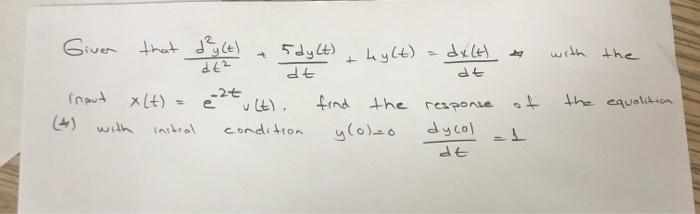 Given that d²y(t)/dt² + 5dy(t)/dt + 4y(t) = dx(t)/dt with the
input x(t) = e^-2t u(t). find the response of the equalition
(*) with initial condition y(0)=0 dy(0)/dt = 1